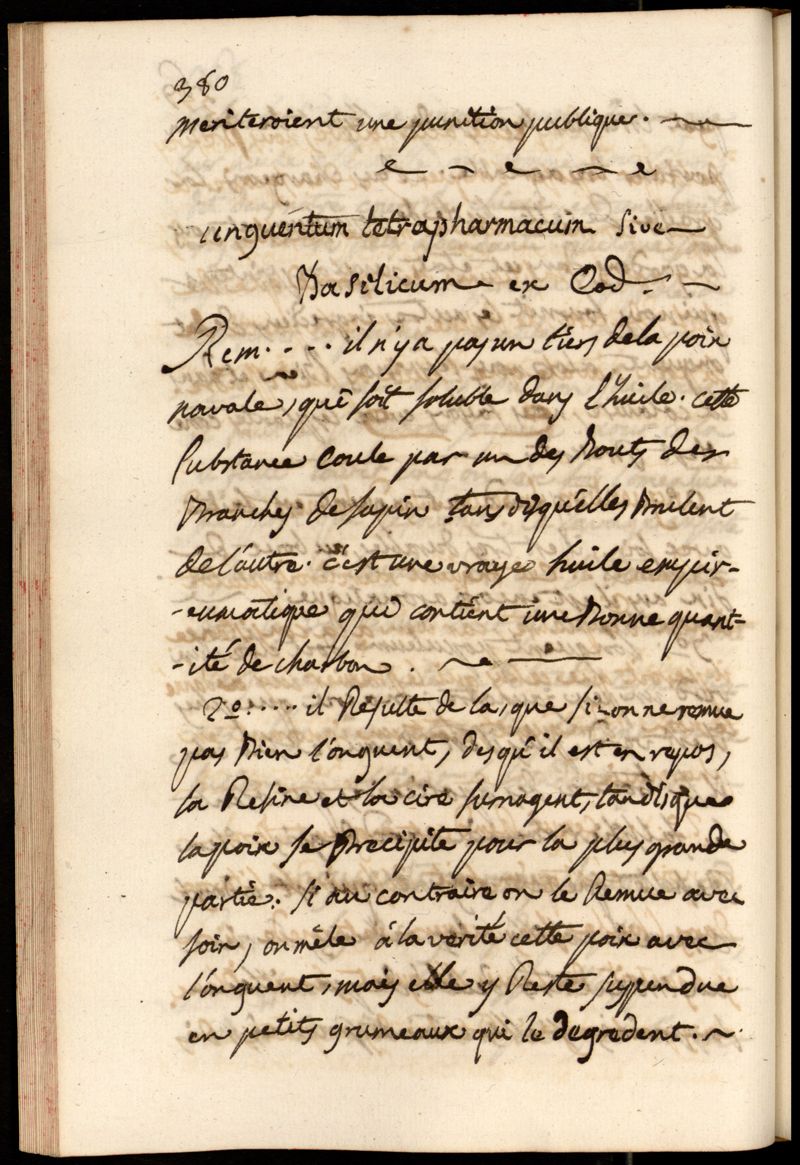 380
meriteroient une punition publique.
unguentum tetrapharmacum sive
Basilicum ex Cod.
Rem. . . . il n'y a pas un tiers de la poix
navale, qui soit soluble dans l'huile. cette
substance coule par un des Bouts des
Branches de sapin tandis qu'elles Brulent
de l'autre. c'est une vraye huile empir-
-eumatique qui contient une Bonne quant-
-ité de charbon.
2o. . . . . il Resulte de la, que si on ne remue
pas Bien l'onguent, des qu'il est en repos,
la Resine et la cire surnagent, tandis que
la poix se Precipite pour la plus grande
partie. si au contraire on le Remue avec
soin, on mêle à la verité cette poix avec
l'onguent, mais elle y Reste suspendue
en petits grumeaux qui le degredent.